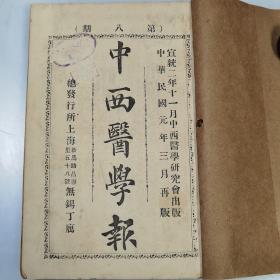 （第八期）
宣統二年十一月中西醫學研究會出版
中華民國元年三月再版
中西醫學報
總發行所上海
無錫丁寓